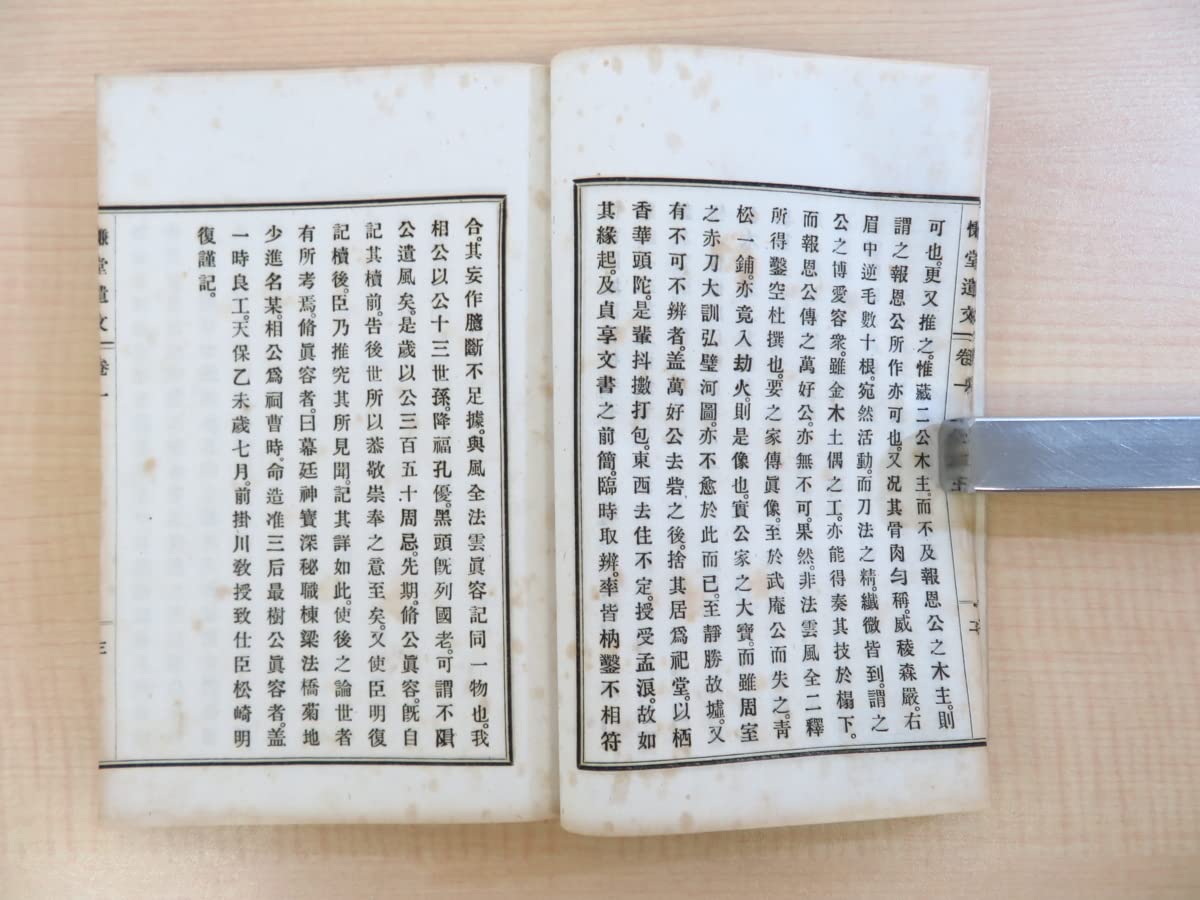 慊堂遺文 卷一
可也。更又推之。惟藏二公木主。而不及報恩公之木主。則
謂之報恩公所作亦可也。又况其骨肉勻稱。威稜森嚴。右
眉中逆毛數十根。宛然活動。而刀法之精。纖微皆到。謂之
公之博愛容衆。雖金木土偶之工。亦能得奏其技於榻下。
而報恩公傳之萬好公。亦無不可。果然。非法雲風全二釋
所得鑿空杜撰也。要之家傳眞像。至於武庵公而失之。靑
松一鋪。亦竟入劫火。則是像也。實公家之大寶。而雖周室
之赤刀大訓弘璧河圖。亦不愈於此而已。至靜勝故墟。又
有不可不辨者。盖萬好公去砦之後。捨其居爲祀堂。以栖
香華頭陀。是輩抖擻打包。東西去住不定。授受孟浪。故如
其緣起。及貞享文書之前簡。臨時取辨。率皆枘鑿不相符
合。其妄作臆斷不足據。與風全法雲眞容記同一物也。我
相公以公十三世孫。降福孔優。黑頭旣列國老。可謂不隕
公遺風矣。是歲以公三百五十周忌。先期。脩公眞容。旣自
記其櫝前。告後世所以恭敬崇奉之意至矣。又使臣明復
記櫝後。臣乃推究其所見聞。記其詳如此。使後之論世者
有所考焉。脩眞容者。曰幕廷神寶深秘職棟梁法橋菊地
少進名某。相公爲祠曹時。命造准三后最樹公眞容者。盖
一時良工。天保乙未歲七月。前掛川敎授致仕臣松崎明
復謹記。
慊堂遺文 卷一
三